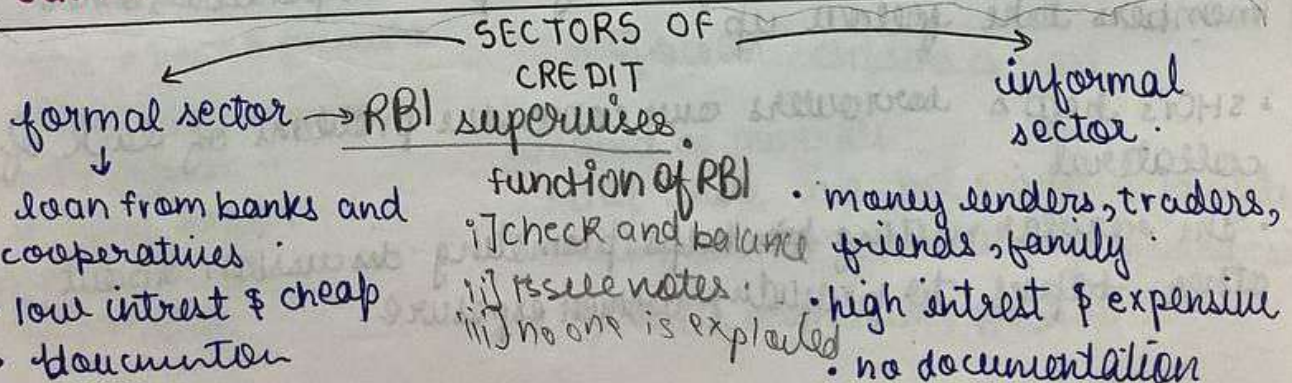 SECTORS OF
CREDIT
formal sector → RBI supervises.
↓
loan from banks and
cooperatives.
low intrest & cheap
function of RBI
i] check and balance
ii] issue notes.
iii] no one is exploited
informal
sector.
• money lenders, traders,
friends, family.
• high intrest & expensive
• no documentation